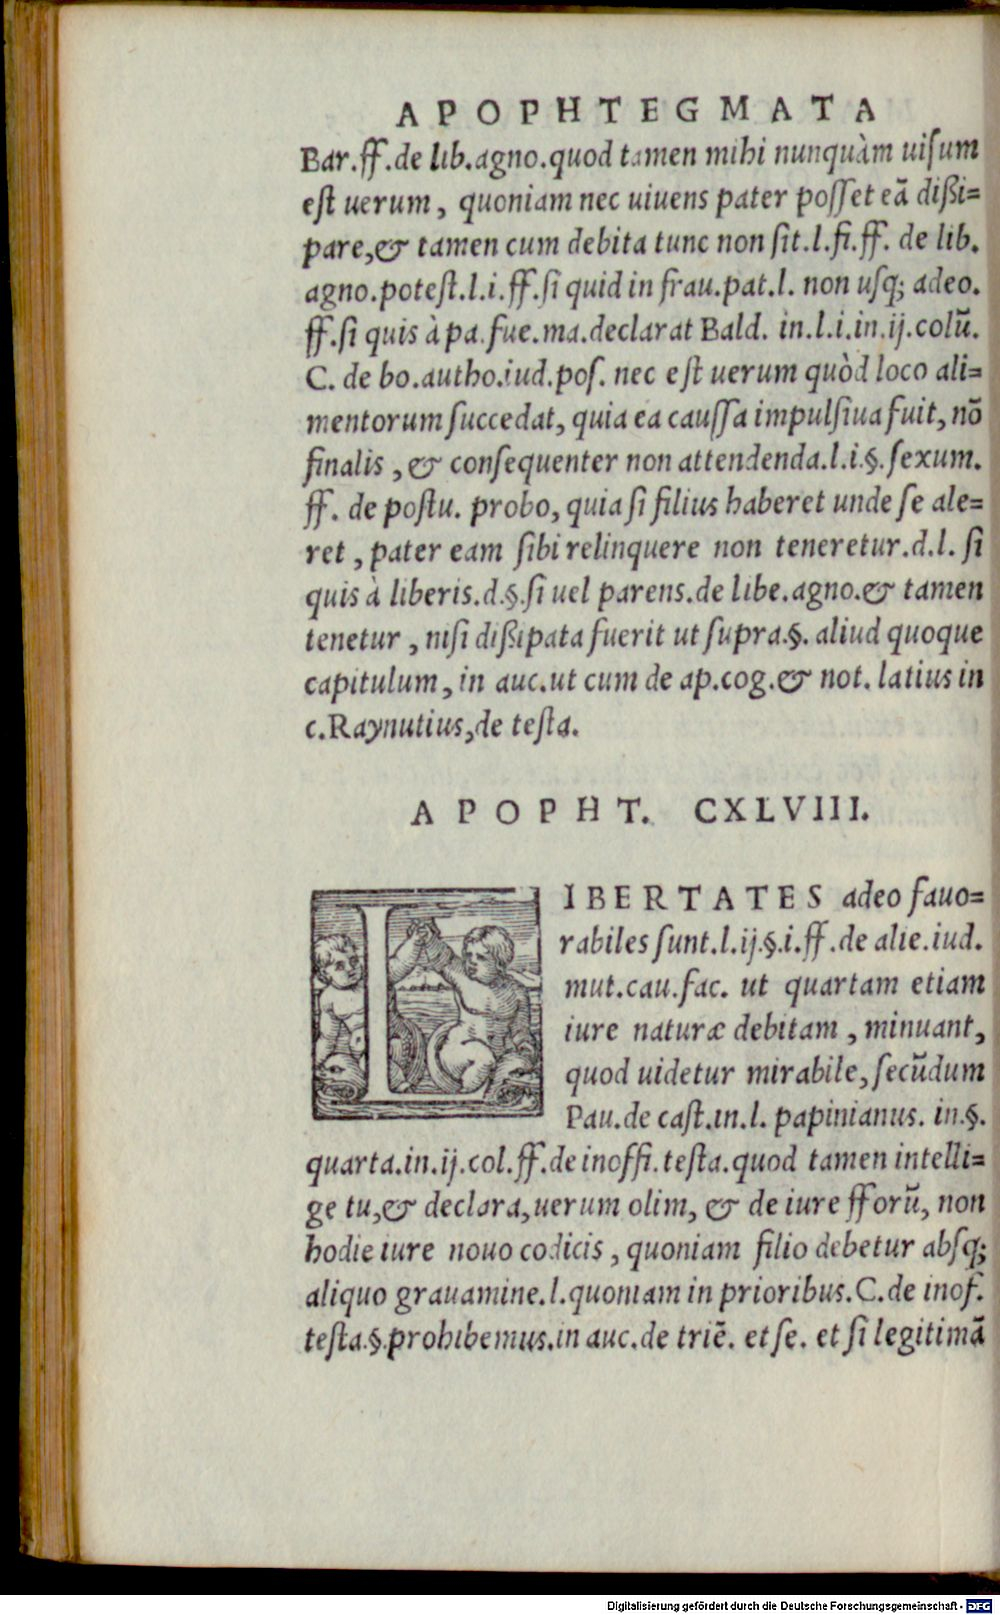 APOPHTEGMATA
Bar.ff.de lib.agno.quod tamen mihi nunquàm uiſum
eſt uerum, quoniam nec uiuens pater poſſet eã dißi=
pare,& tamen cum debita tunc non ſit.l.fi.ff. de lib.
agno.poteſt.l.i.ff.ſi quid in frau.pat.l. non uſq; adeo.
ff.ſi quis à pa.fue.ma.declarat Bald. in.l.i.in.ij.colũ.
C. de bo.autho.iud.poſ. nec eſt uerum quòd loco ali=
mentorum ſuccedat, quia ea cauſſa impulſiua fuit, nõ
finalis, & conſequenter non attendenda.l.i.§.ſexum.
ff. de poſtu. probo, quia ſi filius haberet unde ſe ale=
ret, pater eam ſibi relinquere non teneretur.d.l. ſi
quis à liberis.d.§.ſi uel parens.de libe.agno.& tamen
tenetur, niſi dißipata fuerit ut ſupra.§. aliud quoque
capitulum, in auc.ut cum de ap.cog.& not. latius in
c.Raynutius,de teſta.
APOPHT. CXLVIII.
LIBERTATES adeo fauo=
rabiles ſunt.l.ij.§.i.ff.de alie.iud.
mut.cau.fac. ut quartam etiam
iure naturæ debitam, minuant,
quod uidetur mirabile, ſecũdum
Pau.de caſt.in.l. papinianus. in.§.
quarta.in.ij.col.ff.de inoffi.teſta.quod tamen intelli=
ge tu,& declara,uerum olim, & de iure fforũ, non
hodie iure nouo codicis, quoniam filio debetur abſq;
aliquo grauamine.l.quoniam in prioribus.C.de inof.
teſta.§.prohibemus.in auc.de triẽ. et ſe. et ſi legitimã
Digitalisierung gefördert durch die Deutsche Forschungsgemeinschaft - DFG